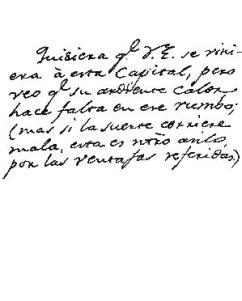 Quisiera q.e V.E. se vini-
era à esta Capital, pero
veo q.e su ardiente calor
hace falta en ese rumbo;
(mas si la suerte corriere
mala, esta es ntro asilo,
por las ventajas referidas.)